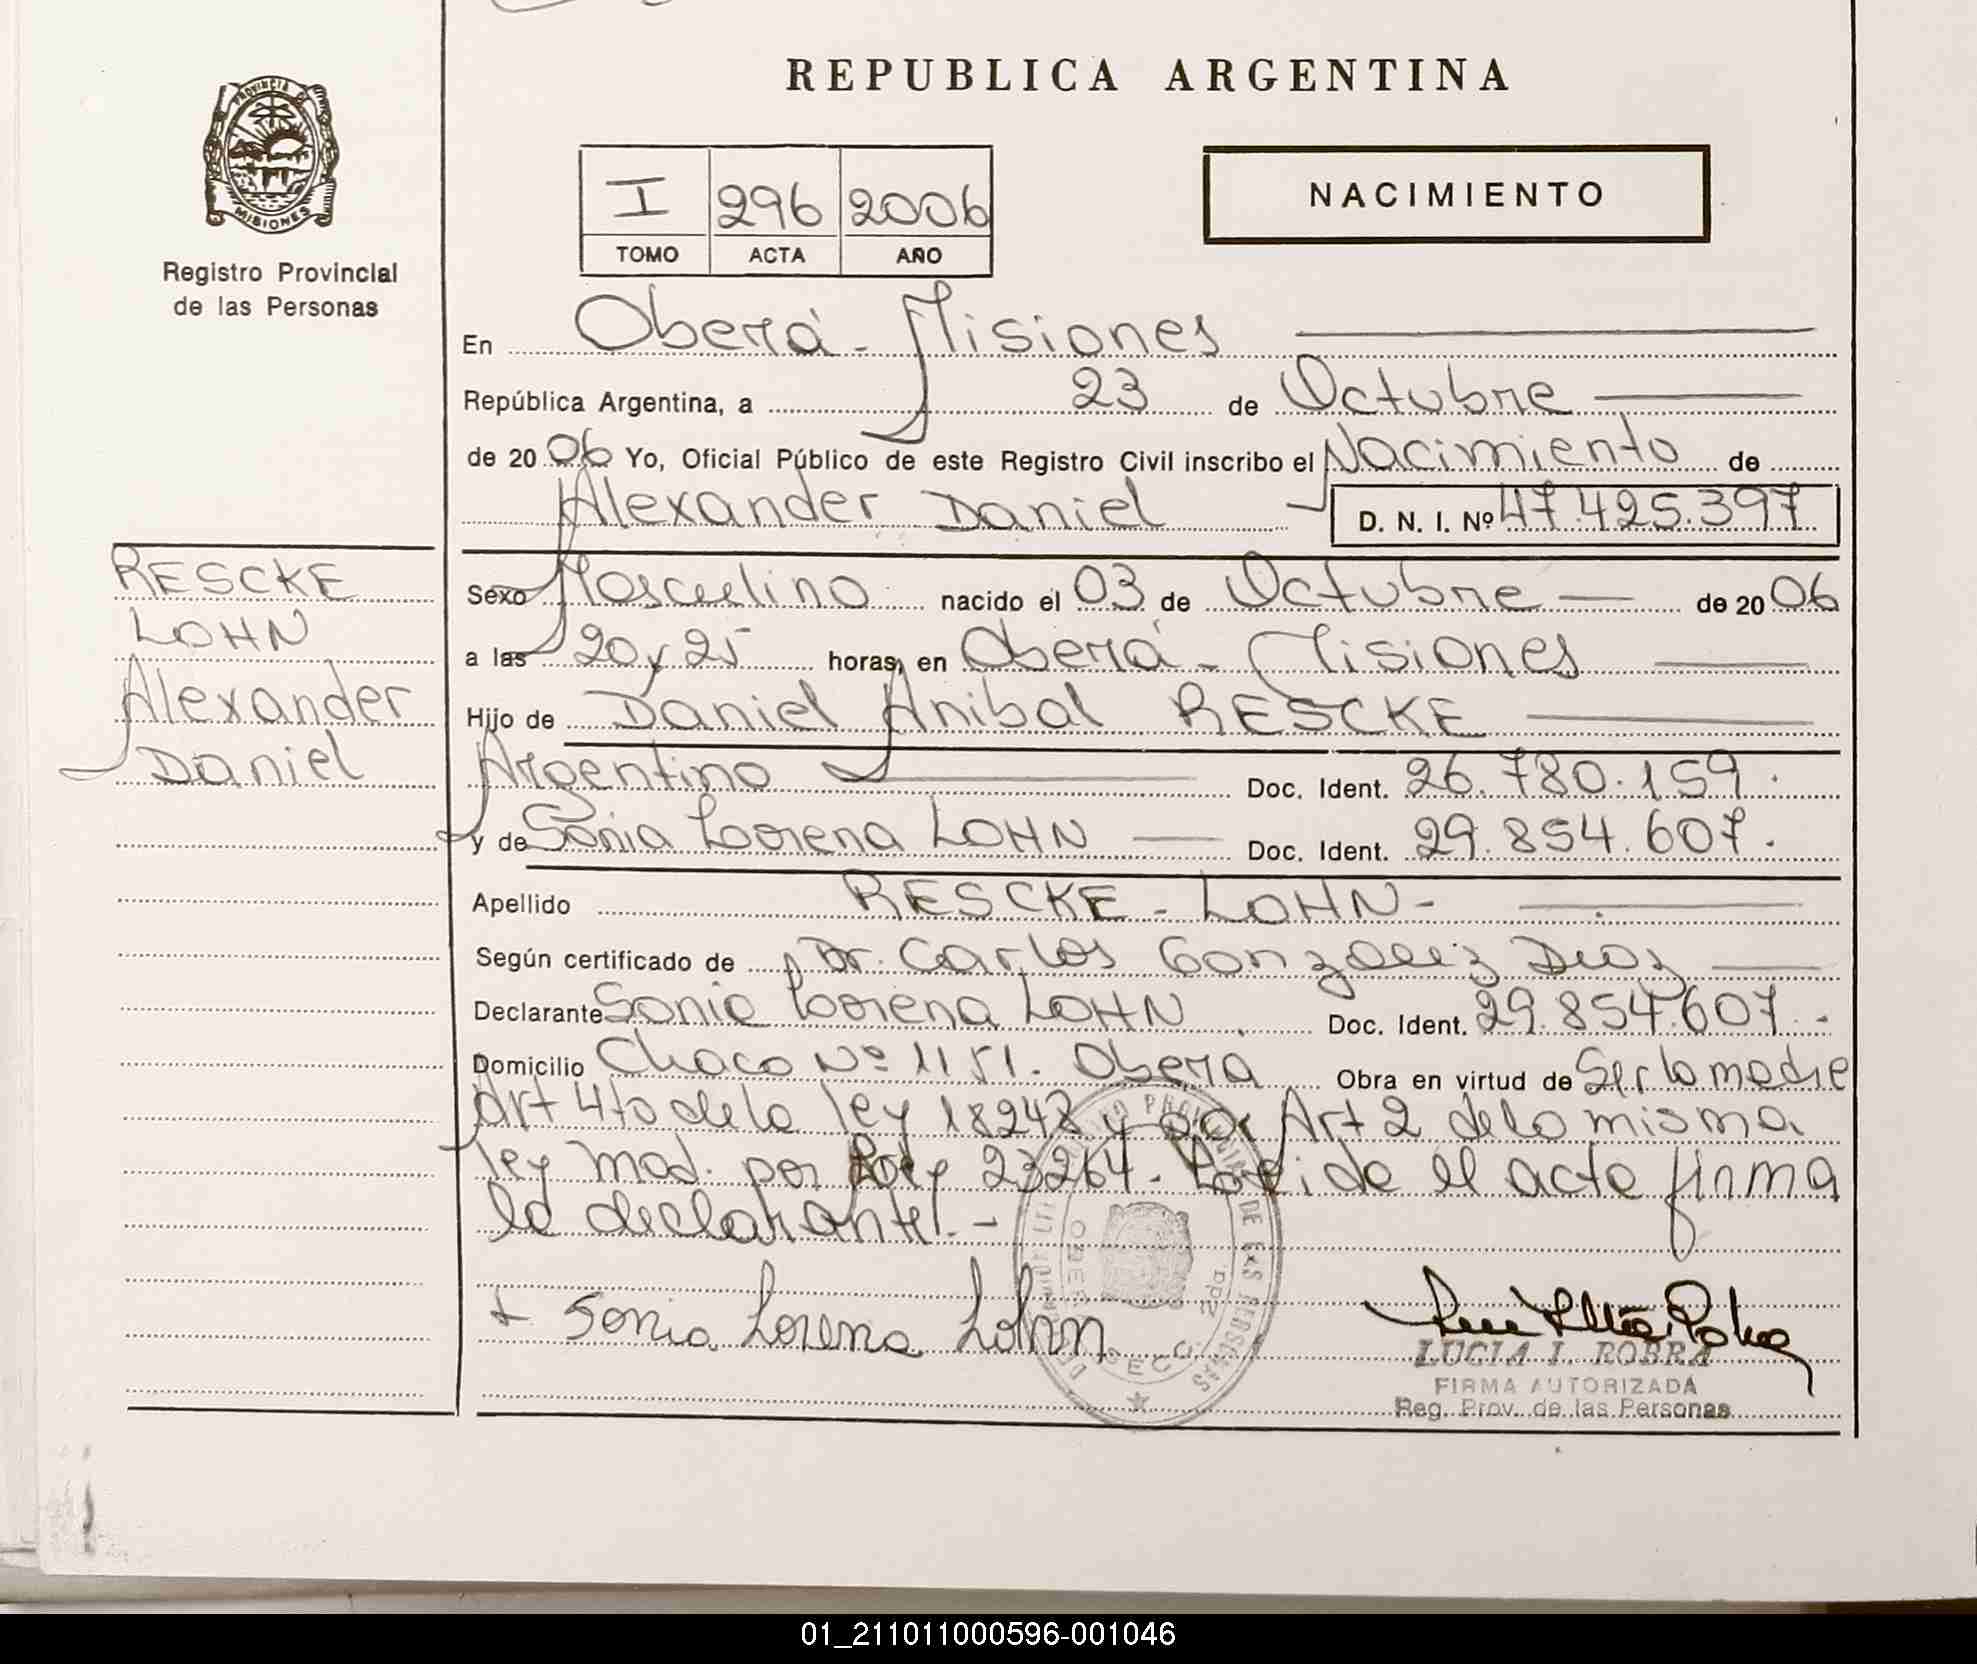 REPUBLICA ARGENTINA
PROVINCIA D
MISIONES
Registro Provincial
de las Personas
I 296 2006
TOMO ACTA AÑO
NACIMIENTO
En Oberá - Misiones
República Argentina, a 23 de Octubre
de 2006 Yo, Oficial Público de este Registro Civil inscribo el Nacimiento de
Alexander Daniel D. N. I. Nº 47.425.397
RESCKE
LOHN
Alexander
Daniel
Sexo Masculino nacido el 03 de Octubre de 2006
a las 20 y 25 horas, en Oberá - Misiones
Hijo de Daniel Anibal RESCKE
Argentino Doc. Ident. 26.780.159.
y de Sonia Lorena LOHN Doc. Ident. 29.854.607.
Apellido RESCKE - LOHN -
Según certificado de Dr. Carlos Gonzalez
Declarante Sonia Lorena LOHN Doc. Ident. 29.854.607.
Domicilio Chaco Nº 1151. Oberá Obra en virtud de Ser la madre
Art 4to de la ley 18248 y por Art 2 de la misma
ley mod. por Ley 23264. Leida el acta firma
la declarante. -
+ Sonia Lorena Lohn
OBERA
SECC. 2da.
LUCIA I. ROBRA
FIRMA AUTORIZADA
Reg. Prov. de las Personas
01_211011000596-001046